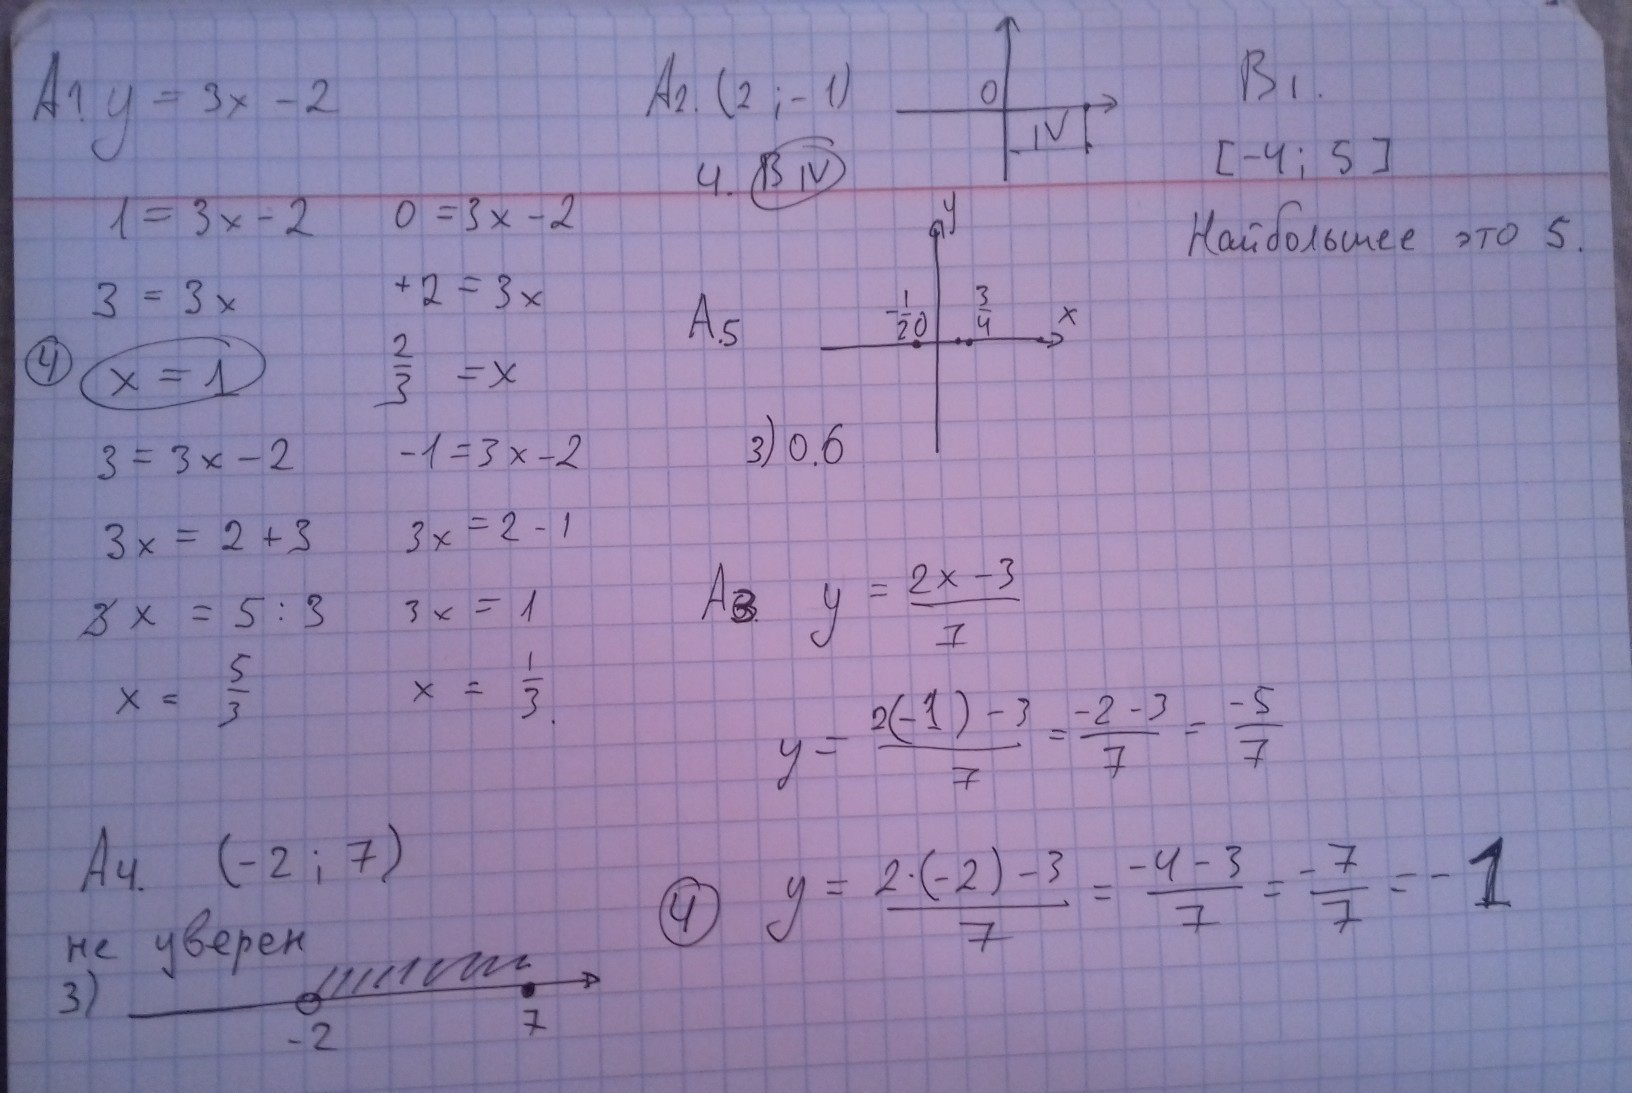 A1. y = 3x - 2
1 = 3x - 2
0 = 3x - 2
3 = 3x
+2 = 3x
④ x = 1
2/3 = x
3 = 3x - 2
-1 = 3x - 2
3x = 2 + 3
3x = 2 - 1
3x = 5 : 3
3x = 1
x = 5/3
x = 1/3.
A4. (-2 ; 7)
не уверен
3)
-2
7
A2. (2 ; -1)
0
IV
4. В IV
A.5
y
-1/2 0 3/4 x
3) 0.6
A3. y = (2x - 3)/7
y = (2(-1) - 3)/7 = (-2 - 3)/7 = -5/7
④ y = (2·(-2) - 3)/7 = (-4 - 3)/7 = -7/7 = -1
B1.
[-4 ; 5]
Наибольшее это 5.